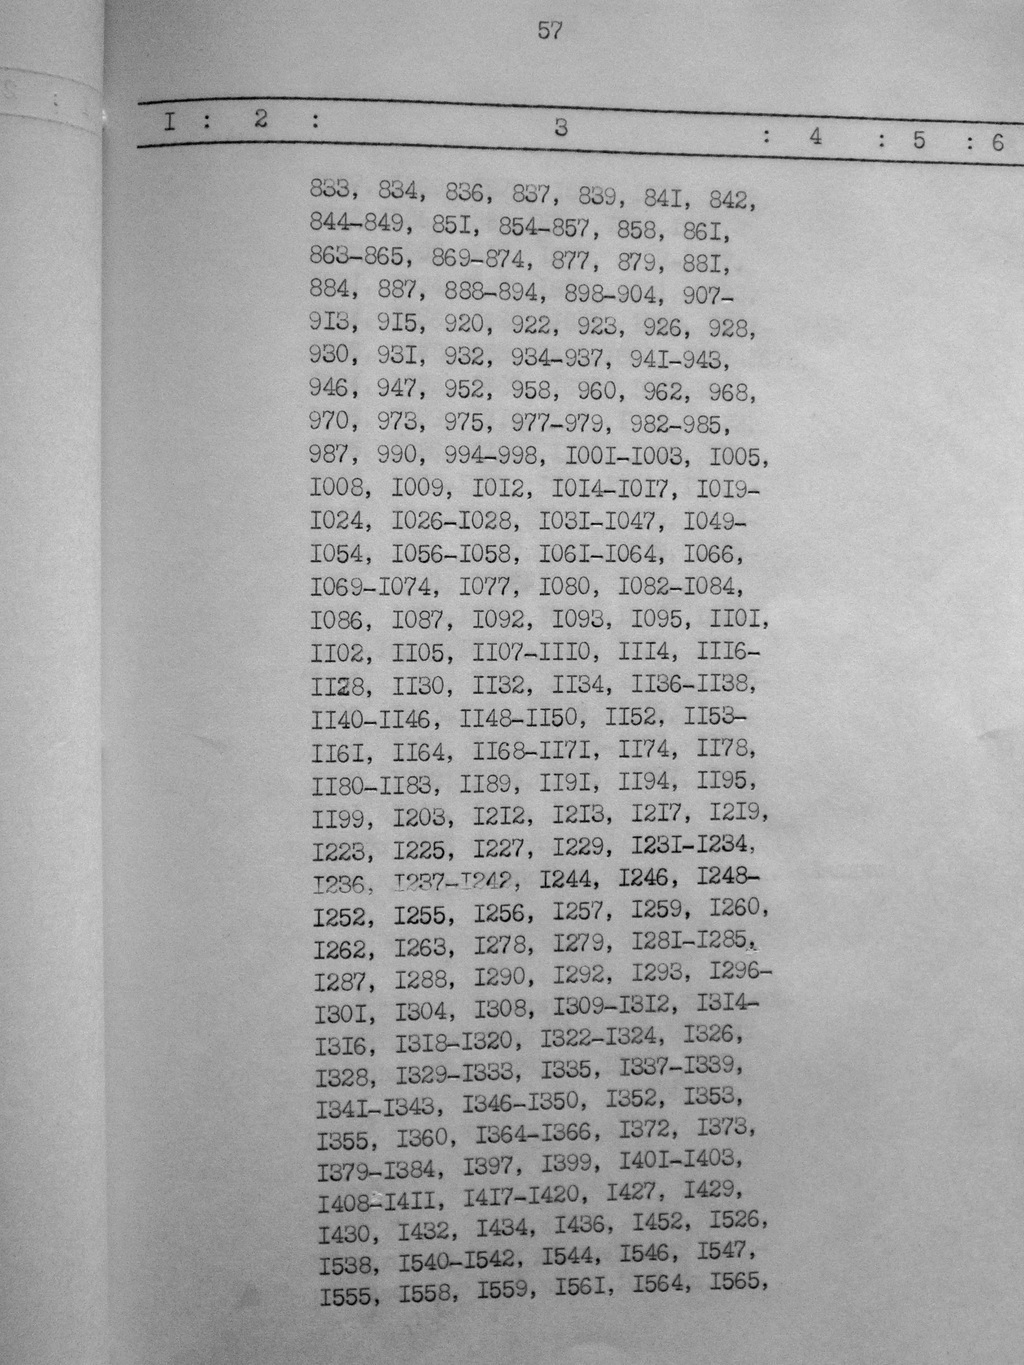 57
I : 2 : 3 : 4 : 5 : 6
833, 834, 836, 837, 839, 84I, 842,
844-849, 85I, 854-857, 858, 86I,
863-865, 869-874, 877, 879, 88I,
884, 887, 888-894, 898-904, 907-
9I3, 9I5, 920, 922, 923, 926, 928,
930, 93I, 932, 934-937, 94I-943,
946, 947, 952, 958, 960, 962, 968,
970, 973, 975, 977-979, 982-985,
987, 990, 994-998, I00I-I003, I005,
I008, I009, I0I2, I0I4-I0I7, I0I9-
I024, I026-I028, I03I-I047, I049-
I054, I056-I058, I06I-I064, I066,
I069-I074, I077, I080, I082-I084,
I086, I087, I092, I093, I095, II0I,
II02, II05, II07-III0, III4, III6-
II28, II30, II32, II34, II36-II38,
II40-II46, II48-II50, II52, II53-
II6I, II64, II68-II7I, II74, II78,
II80-II83, II89, II9I, II94, II95,
II99, I203, I2I2, I2I3, I2I7, I2I9,
I223, I225, I227, I229, I23I-I234,
I236, I237-I242, I244, I246, I248-
I252, I255, I256, I257, I259, I260,
I262, I263, I278, I279, I28I-I285,
I287, I288, I290, I292, I293, I296-
I30I, I304, I308, I309-I3I2, I3I4-
I3I6, I3I8-I320, I322-I324, I326,
I328, I329-I333, I335, I337-I339,
I34I-I343, I346-I350, I352, I353,
I355, I360, I364-I366, I372, I373,
I379-I384, I397, I399, I40I-I403,
I408-I4II, I4I7-I420, I427, I429,
I430, I432, I434, I436, I452, I526,
I538, I540-I542, I544, I546, I547,
I555, I558, I559, I56I, I564, I565,